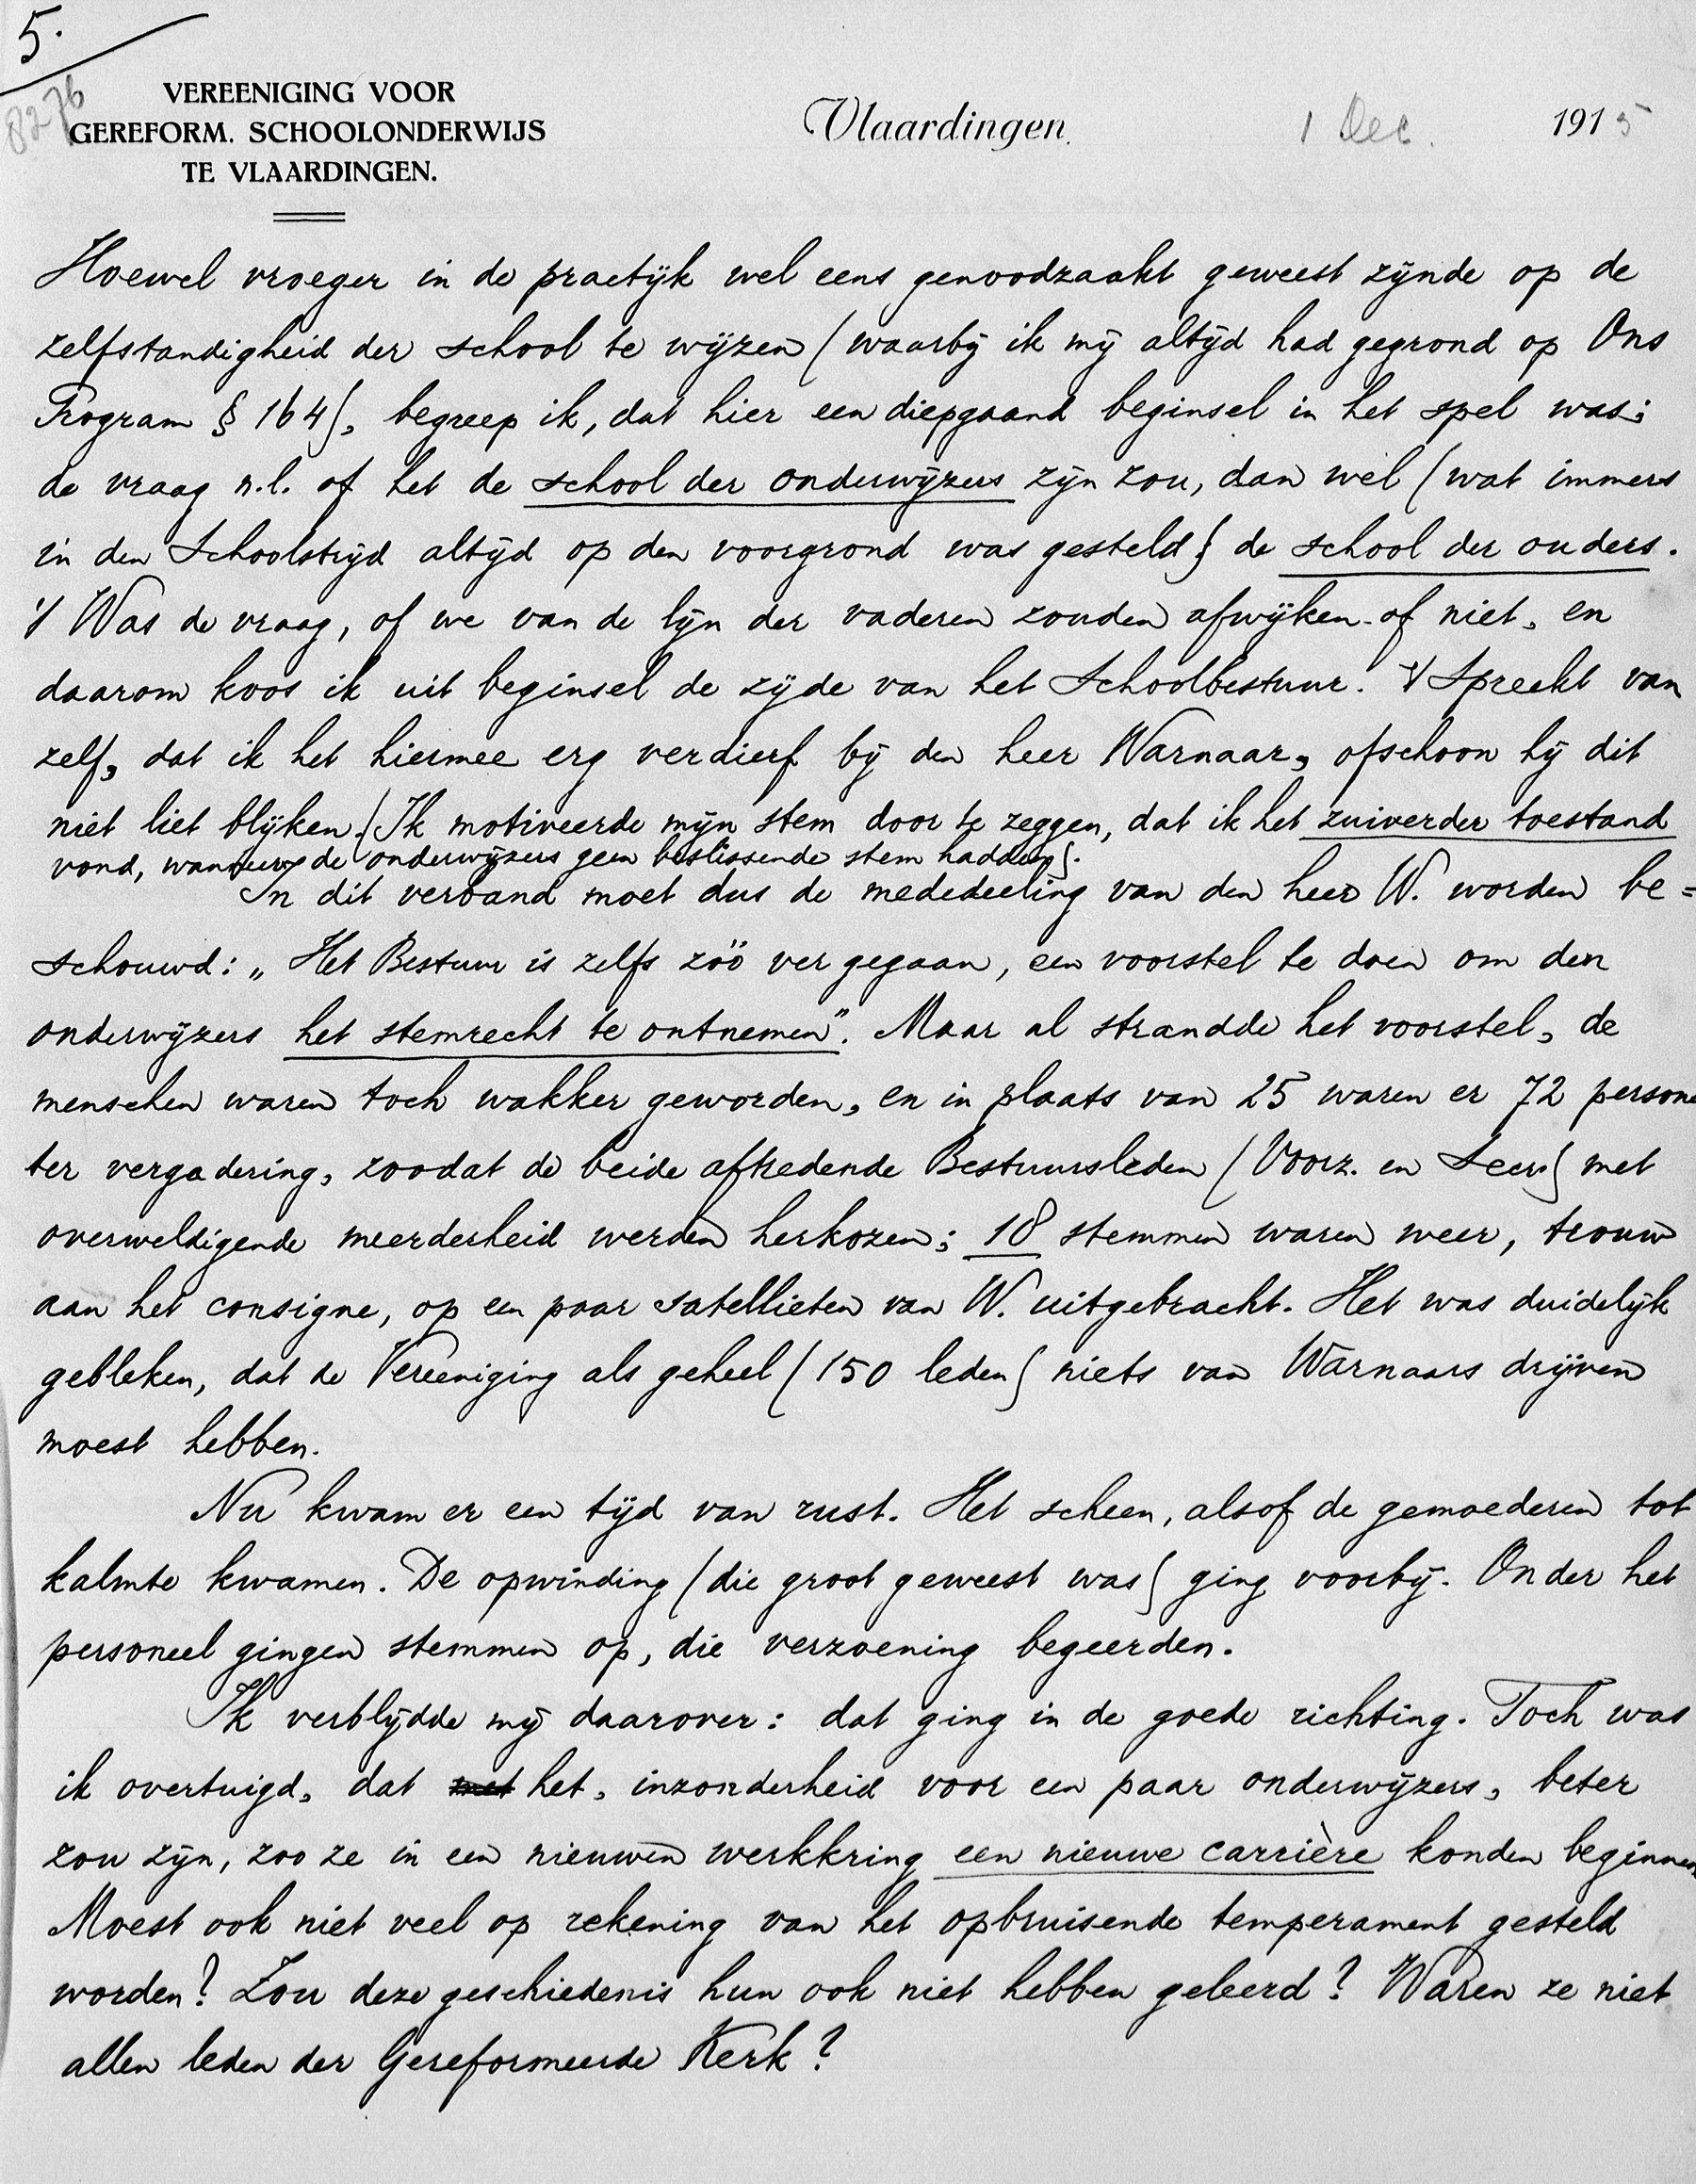 5.
8276
VEREENIGING VOOR
GEREFORM. SCHOOLONDERWIJS
TE VLAARDINGEN.
Vlaardingen, 1 Dec. 1915
Hoewel vroeger in de practijk wel eens genoodzaakt geweest zijnde op de
zelfstandigheid der school te wijzen (waarbij ik mij altijd had gegrond op Ons
Program § 164), begreep ik, dat hier een diepgaand beginsel in het spel was:
de vraag n.l. of het de school der onderwijzers zijn zou, dan wel (wat immers
in den Schoolstrijd altijd op den voorgrond was gesteld) de school der ouders.
't Was de vraag, of we van de lijn der vaderen zouden afwijken of niet, en
daarom koos ik uit beginsel de zijde van het Schoolbestuur. 't Spreekt van
zelf, dat ik het hiermee erg verdierf bij den heer Warnaar, ofschoon hij dit
niet liet blijken. (Ik motiveerde mijn stem door te zeggen, dat ik het zuiverder toestand
vond, wanneer de onderwijzers geen beslissende stem hadden).
In dit verband moet dus de mededeeling van den heer W. worden be=
schouwd: „Het Bestuur is zelfs zóó ver gegaan, een voorstel te doen om den
onderwijzers het stemrecht te ontnemen". Maar al strandde het voorstel, de
menschen waren toch wakker geworden, en in plaats van 25 waren er 72 persone
ter vergadering, zoodat de beide aftredende Bestuursleden (Voorz. en Secr.) met
overweldigende meerderheid werden herkozen; 18 stemmen waren weer, trouw
aan het consigne, op een paar satellieten van W. uitgebracht. Het was duidelijk
gebleken, dat de Vereeniging als geheel (150 leden) niets van Warnaars drijven
moest hebben.
Nu kwam er een tijd van rust. Het scheen, alsof de gemoederen tot
kalmte kwamen. De opwinding (die groot geweest was) ging voorbij. Onder het
personeel gingen stemmen op, die verzoening begeerden.
Ik verblijdde mij daarover: dat ging in de goede richting. Toch was
ik overtuigd, dat het, inzonderheid voor een paar onderwijzers, beter
zou zijn, zoo ze in een nieuwen werkkring een nieuwe carrière konden beginnen
Moest ook niet veel op rekening van het opbruisende temperament gesteld
worden? Zou deze geschiedenis hun ook niet hebben geleerd? Waren ze niet
allen leden der Gereformeerde Kerk?